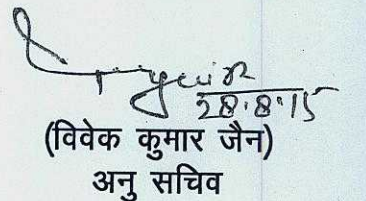 28.8.15
(विवेक कुमार जैन)
अनु सचिव